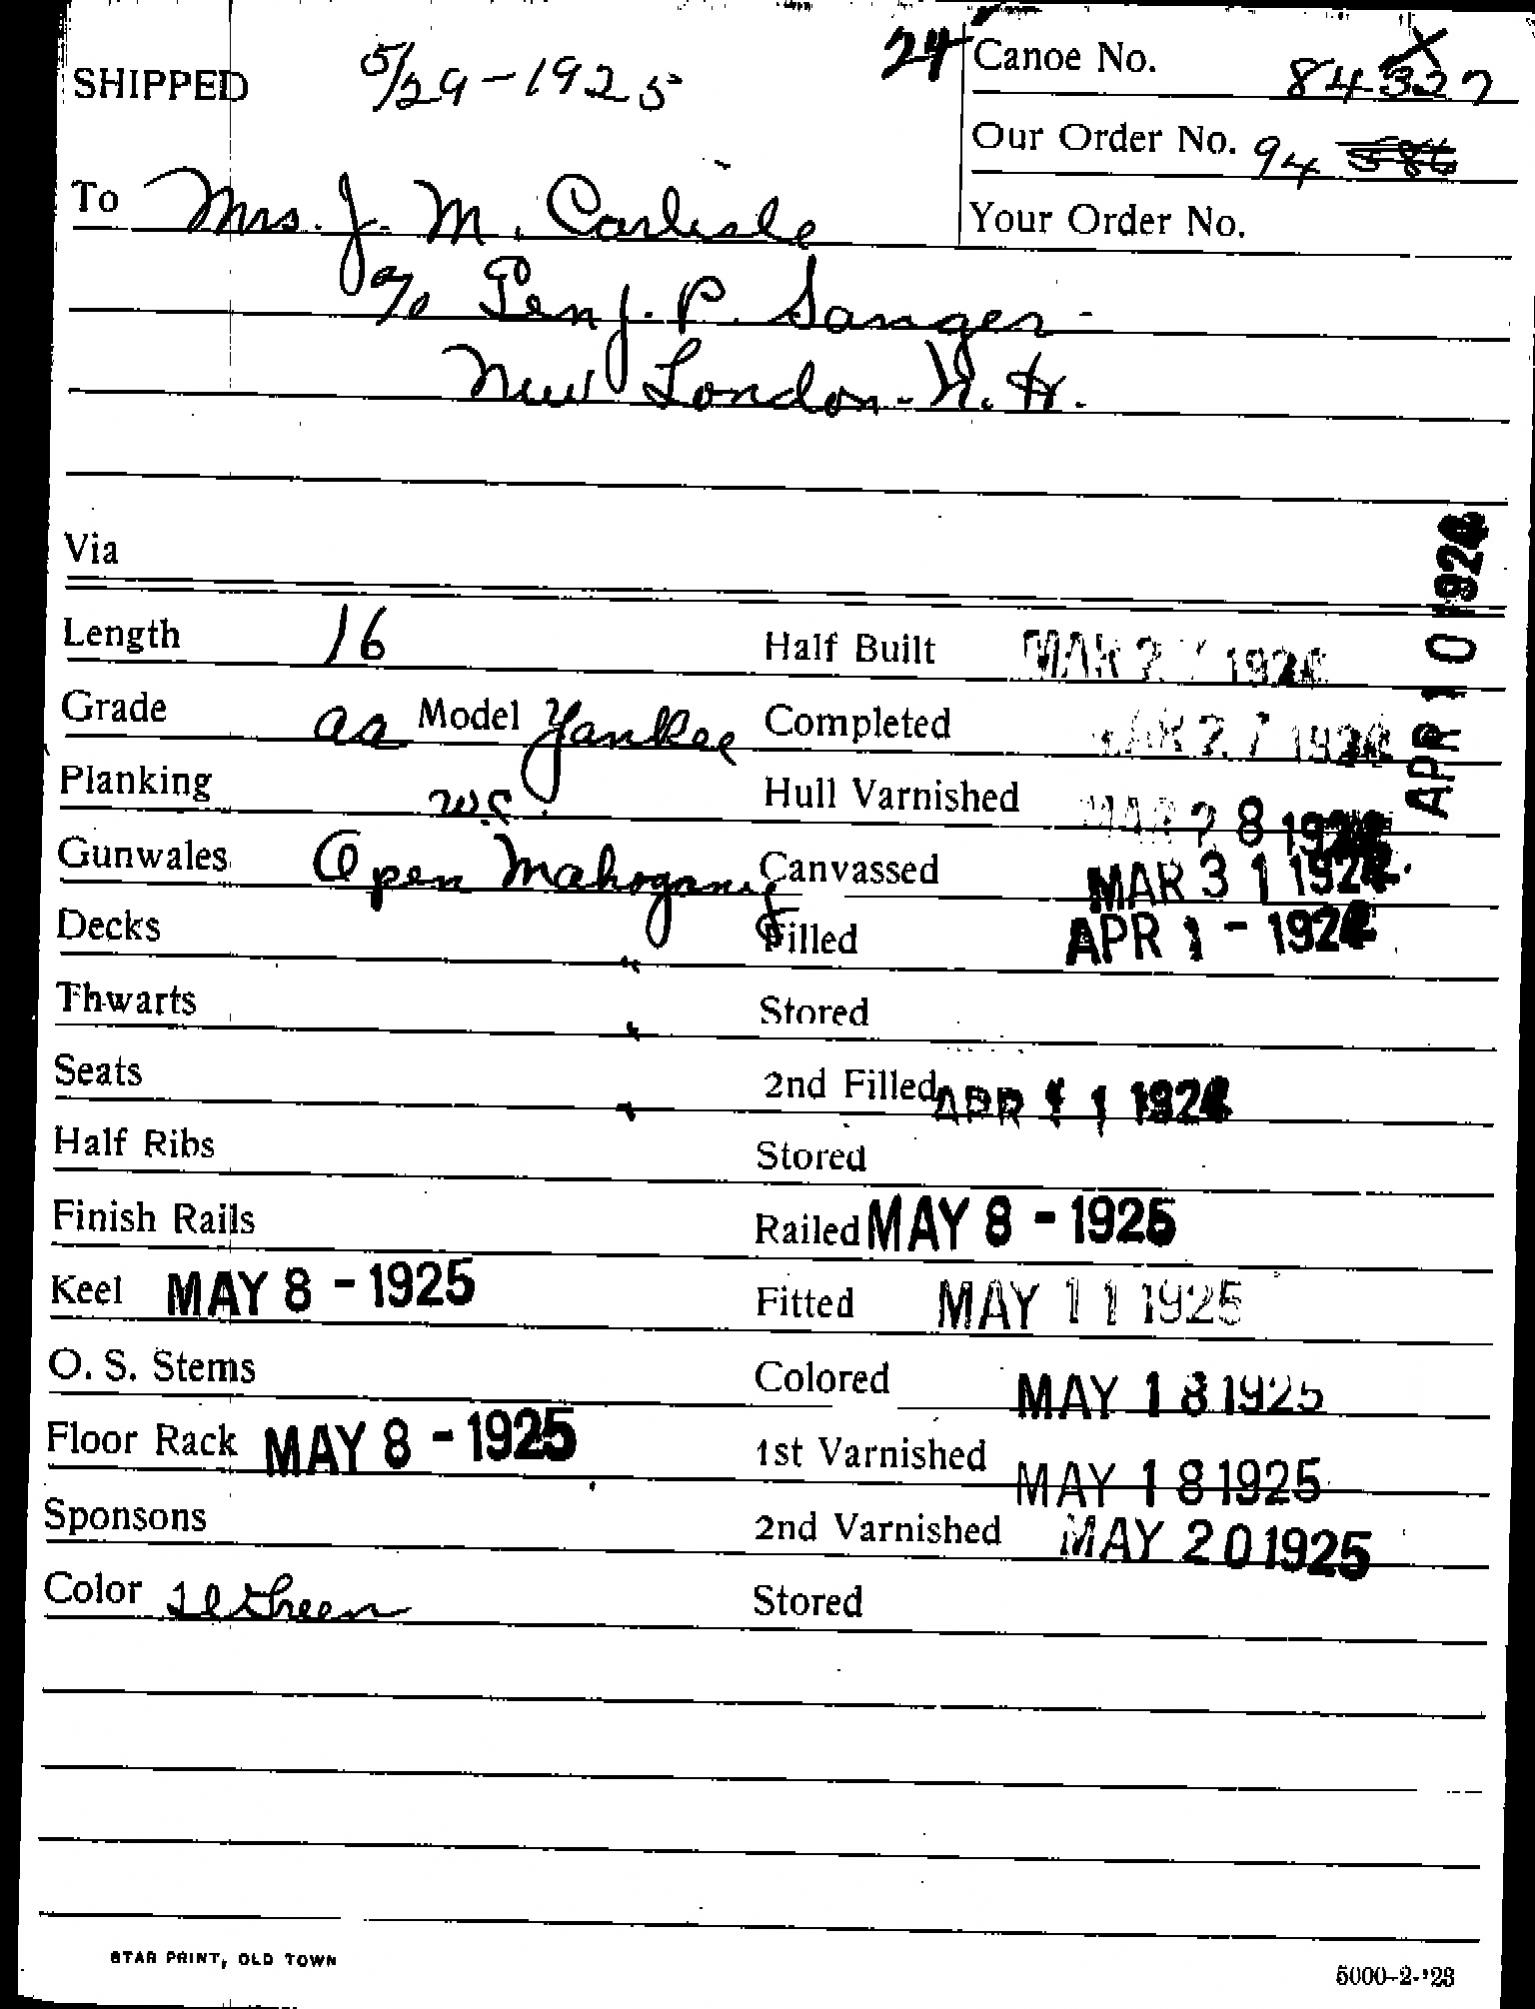 SHIPPED 5/29-1925 24 Canoe No. 84327
Our Order No. 94 586
To Mrs. J. M. Carlisle Your Order No.
c/o Benj. P. Sanger
New London - N. H.
Via
APR 10 1924
Length 16 Half Built MAR 27 1924
Grade aa Model Yankee Completed MAR 27 1924
Planking w.c. Hull Varnished MAR 28 1924
Gunwales Open Mahogany Canvassed MAR 31 1924
Decks " Filled APR 1 - 1924
Thwarts " Stored
Seats " 2nd Filled APR 11 1924
Half Ribs Stored
Finish Rails Railed MAY 8 - 1925
Keel MAY 8 - 1925 Fitted MAY 11 1925
O. S. Stems Colored MAY 18 1925
Floor Rack MAY 8 - 1925 1st Varnished MAY 18 1925
Sponsons 2nd Varnished MAY 20 1925
Color Green Stored
STAR PRINT, OLD TOWN 5000-2-'23